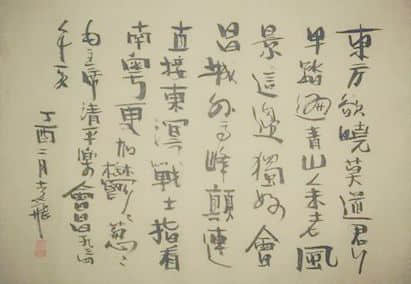 東方欲曉莫道君行
早踏遍青山人未老風
景這邊獨好會
昌城外高峰顛連
直接東溟戰士指看
南粤更加欝々葱々
毛主席清平樂會昌一九三四
年夏
丁酉二月